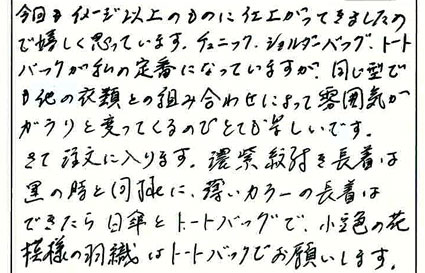 今回もイメージ以上のものに仕上がってきましたの
で嬉しく思っています。チュニック、ショルダーバッグ、トート
バックが私の定番になっていますが、同じ型で
も他の衣類との組み合わせによって雰囲気が
ガラリと変ってくるのでとても楽しいです。
さて注文に入ります。濃紫紋付き長着は
黒の時と同様に、薄いカラーの長着は
できたら日傘とトートバッグで、小豆色の花
模様の羽織はトートバックでお願いします。